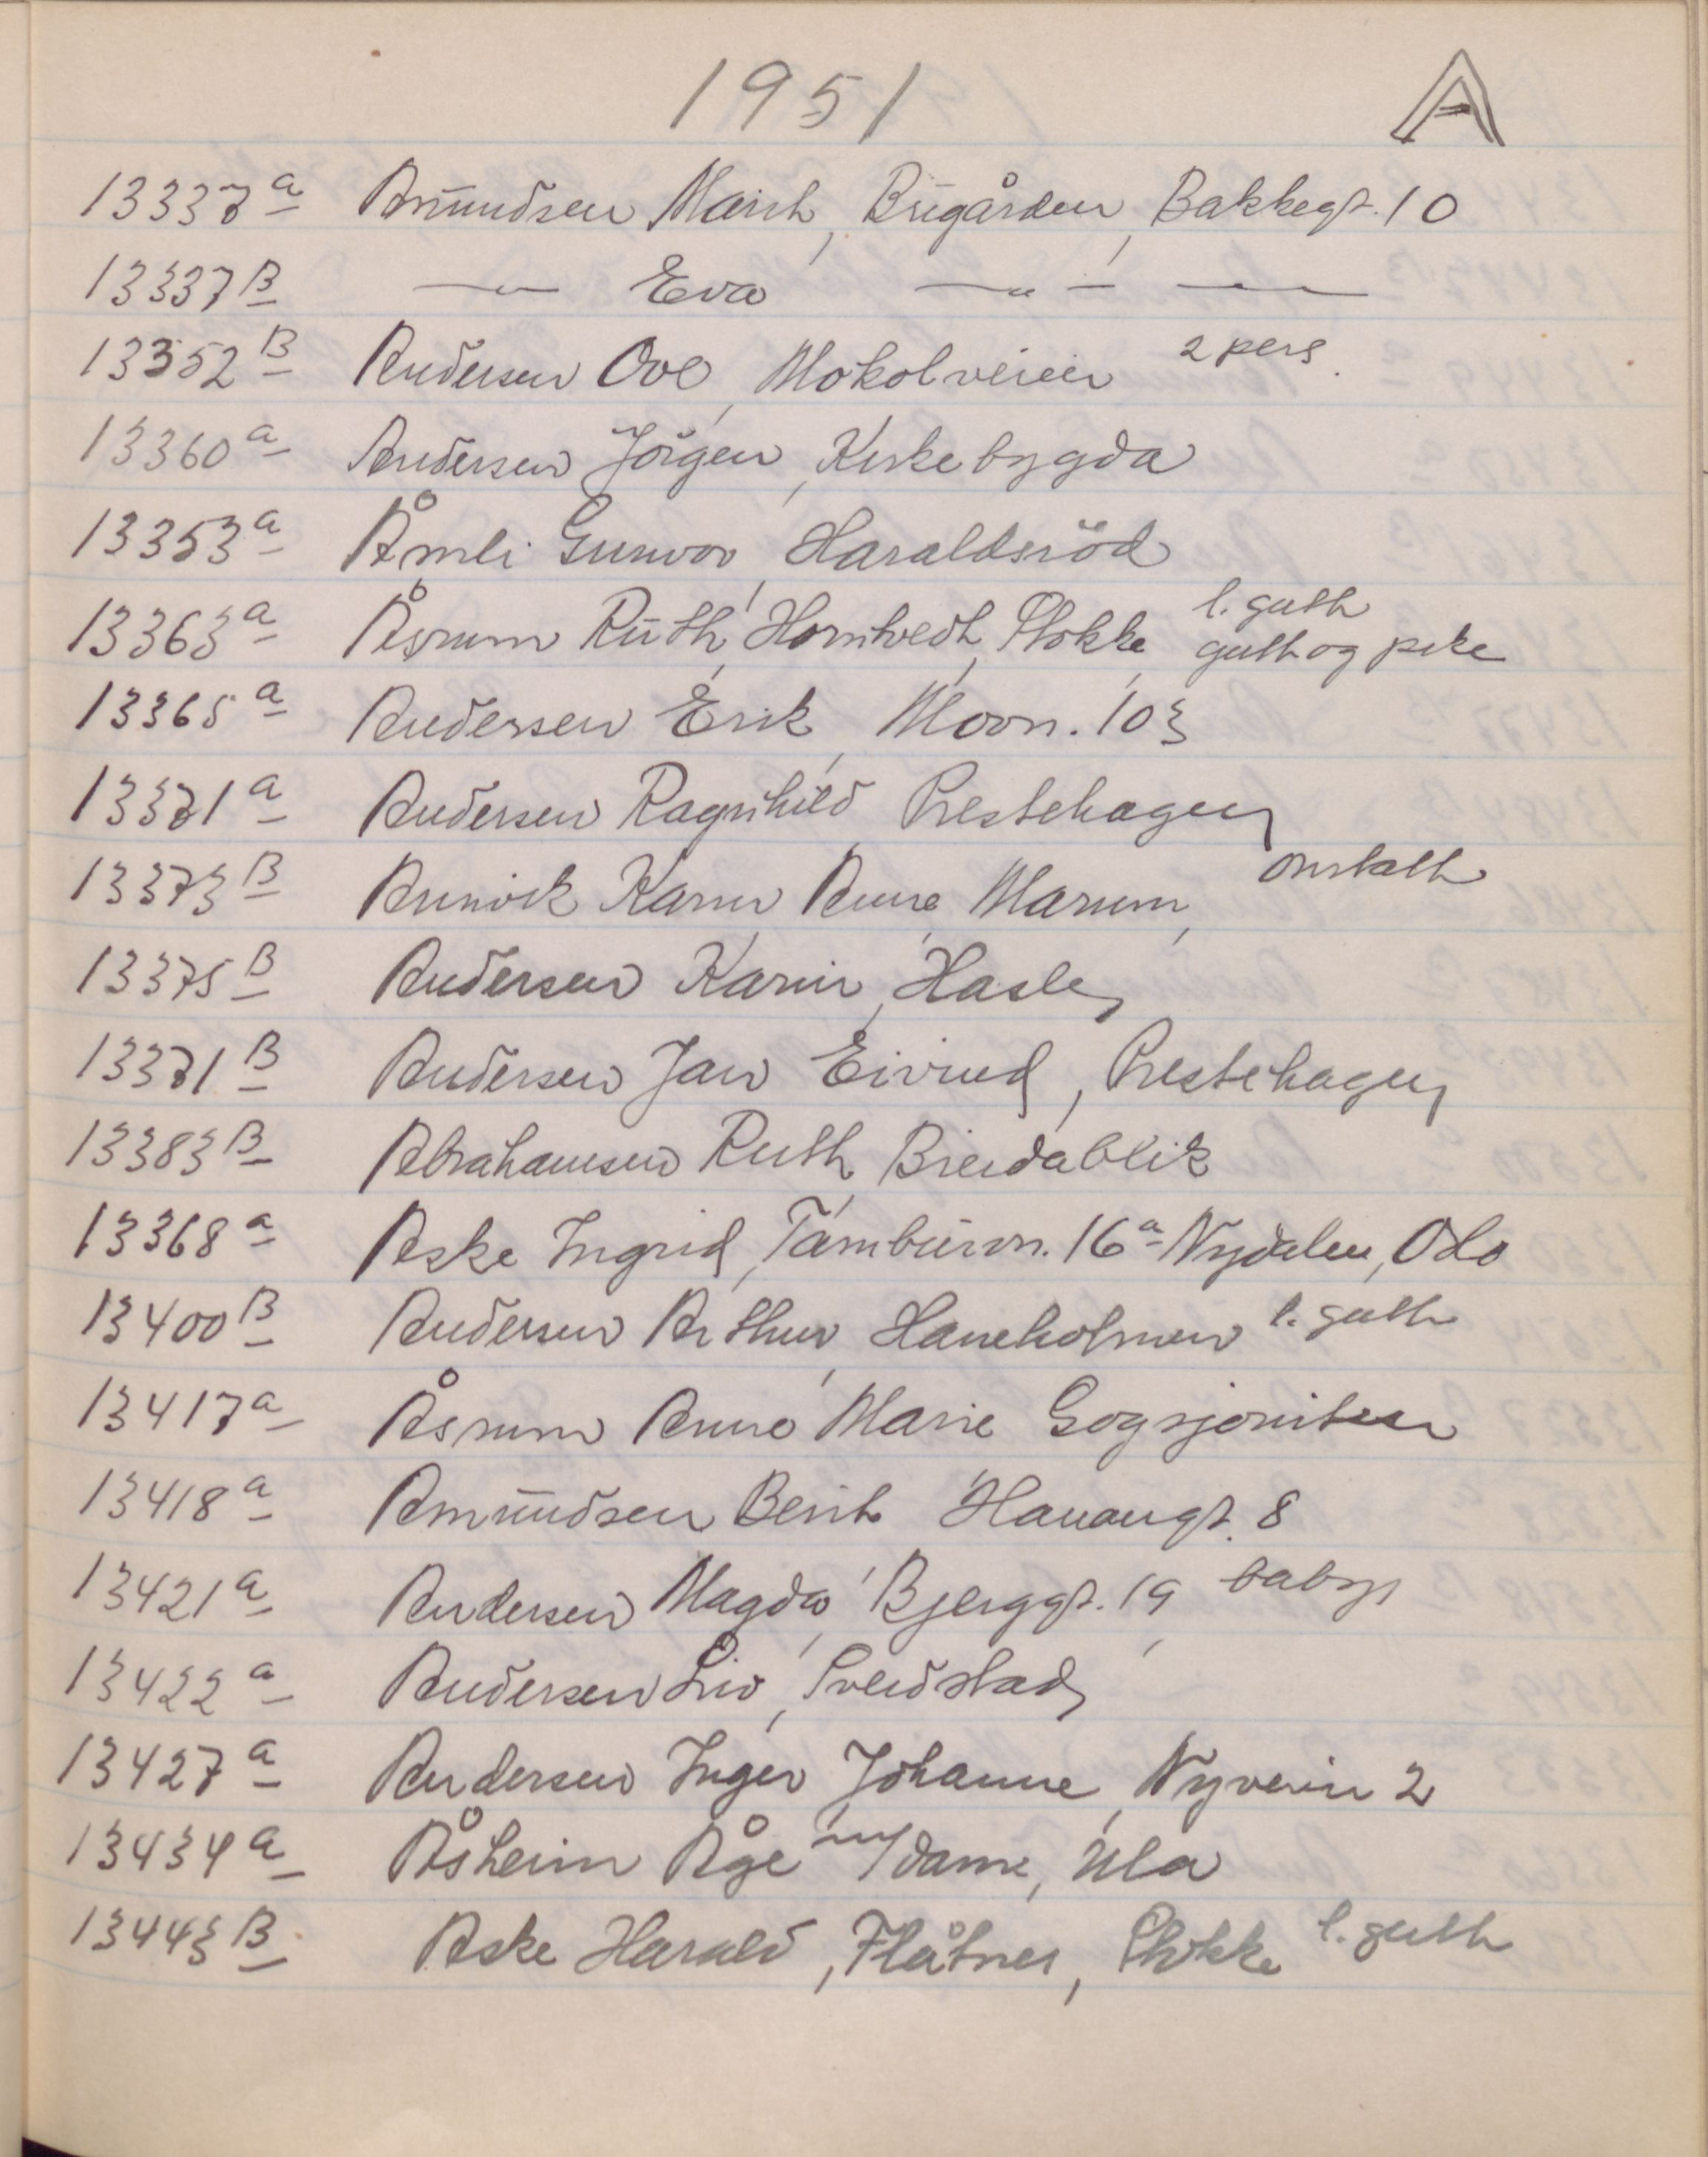 1951 A
13337a Amundsen Marit, Bugården, Bakkegt. 10
13337B —"— Eva —"— —"—
13352B Andersen Ove, Mokolveien 2 pers.
13360a Andersen Jörgen, Kirkebygda
13353a Åmli Gunvor, Haraldsröd
13363a Åsrum Ruth, Horntvedt, Stokke, l. gutt gutt og pike
13365a Andersen Erik, Moav. 103
13371a Andersen Ragnhild Prestehagen
13373B Karin Anne, Marum, Onstatt
13375B Andersen Karin, Hasle
13371B Andersen Jan Eivind, Prestehagen
13383B Abrahamsen Ruth Breidablik
13368a Aske Ingrid, Tambúrvn. 16a Nydalen, Oslo
13400B Andersen Arthur, Haneholmen l. gutt
13417a Åsrum Anne Marie Gogsjoniteen
13418a Amundsen Berit Havangt. 8
13421a Andersen Magda, Bjerggt. 19, baby
13422a Andersen Liv, Sverdstad
13427a Andersen Inger Johanne, Nyveien 2
13434a Åsheim Åge m/dame, Ula
13443B Aske Harald, Flåtnes, Stokke l. gutt